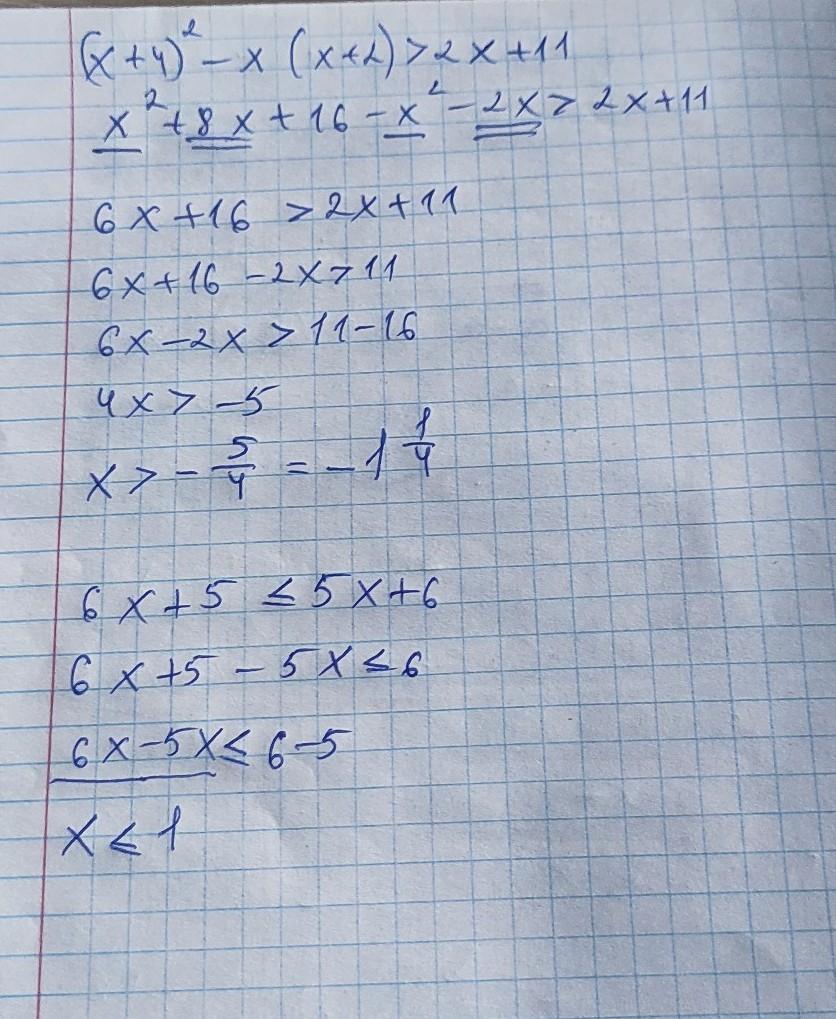 (x+4)² - x (x+2) > 2x+11
x² + 8x + 16 - x² - 2x > 2x+11
6x+16 > 2x+11
6x+16 - 2x > 11
6x - 2x > 11 - 16
4x > -5
x > - 5/4 = -1 1/4
6x+5 ≤ 5x+6
6x+5 - 5x ≤ 6
6x - 5x ≤ 6 - 5
x ≤ 1